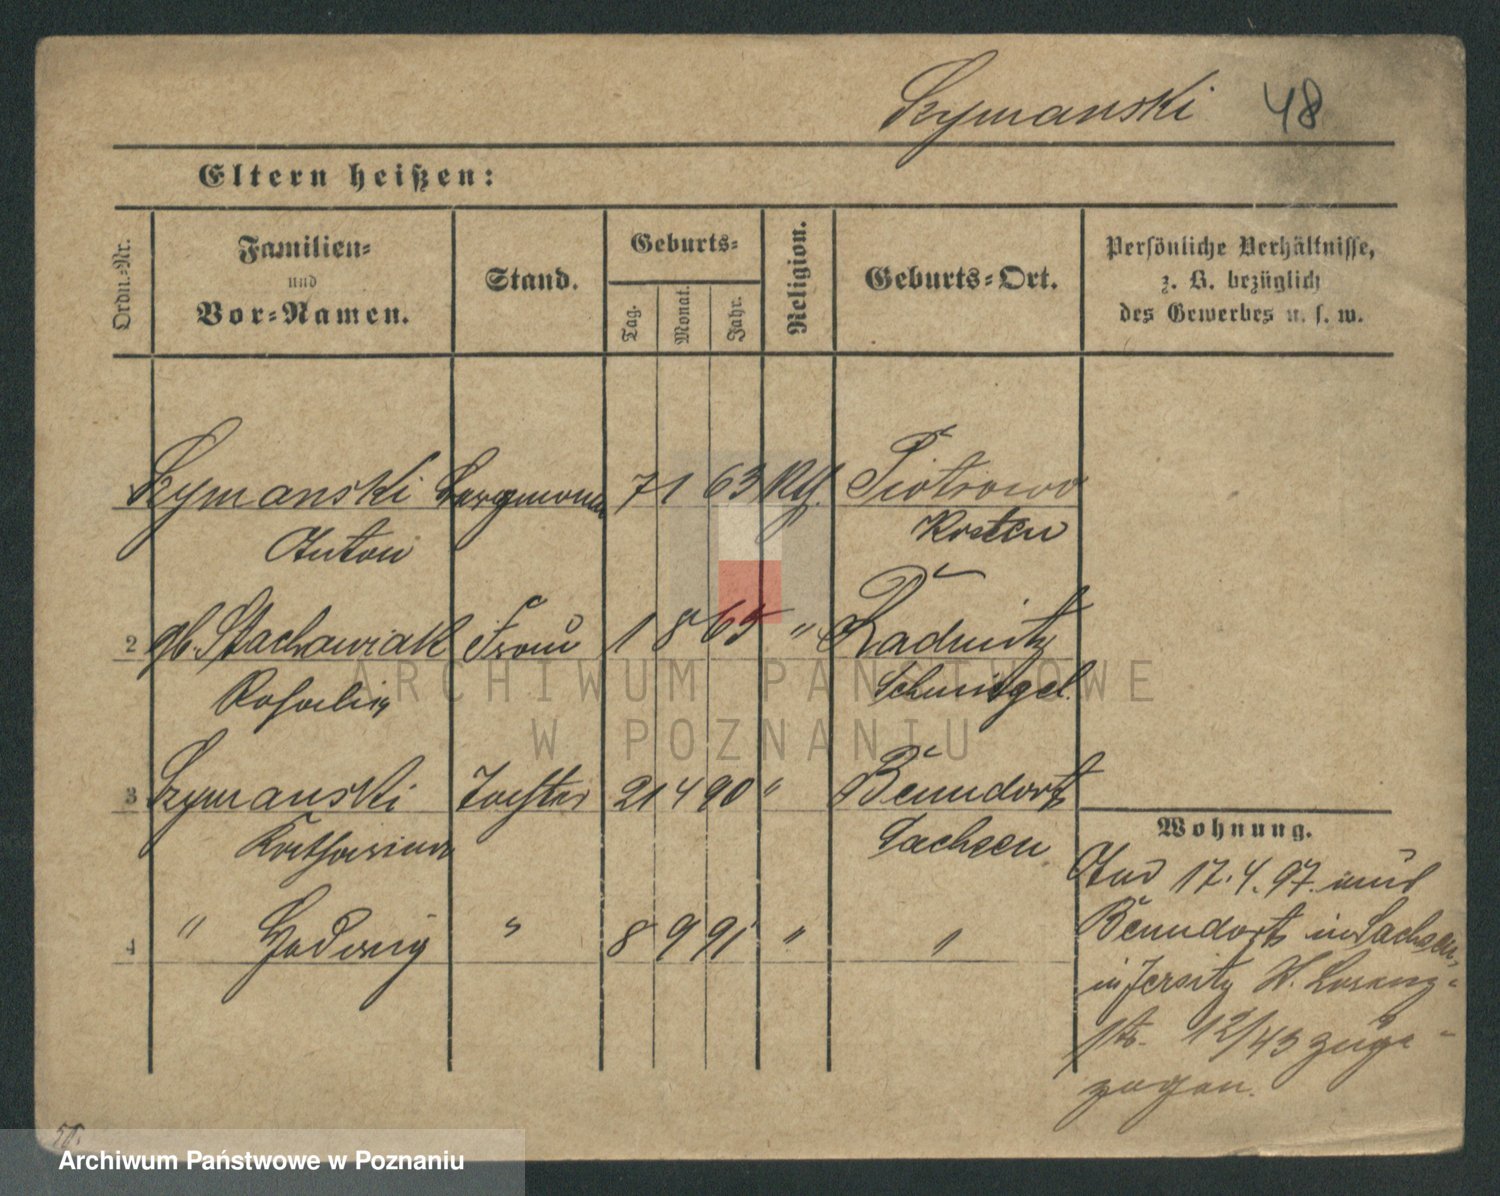 Szymanski 48
Eltern heißen:
Ordn.-Nr.
Familien-
und
Vor-Namen.
Stand.
Geburts-
Tag.
Monat.
Jahr.
Religion.
Geburts-Ort.
Persönliche Verhältnisse,
z. B. bezüglich
des Gewerbes u. s. w.
Szymanski Bergmann 7 1 63 Piotrowo
Anton Kosten
2 gb. Stachowiak Frau 1 8 65 " Radnitz
Rosalia Schmiegel
3 Szymanski Tochter 21 4 90 " Benndorf
Katharina Sachsen
4 " Hedwig " 8 9 91 " "
Wohnung.
17.4.97. aus
Benndorf in Sachsen,
in Jersitz
str. 12/43 zuge-
zogen.
ARCHIWUM PAŃSTWOWE
W POZNANIU
Archiwum Państwowe w Poznaniu